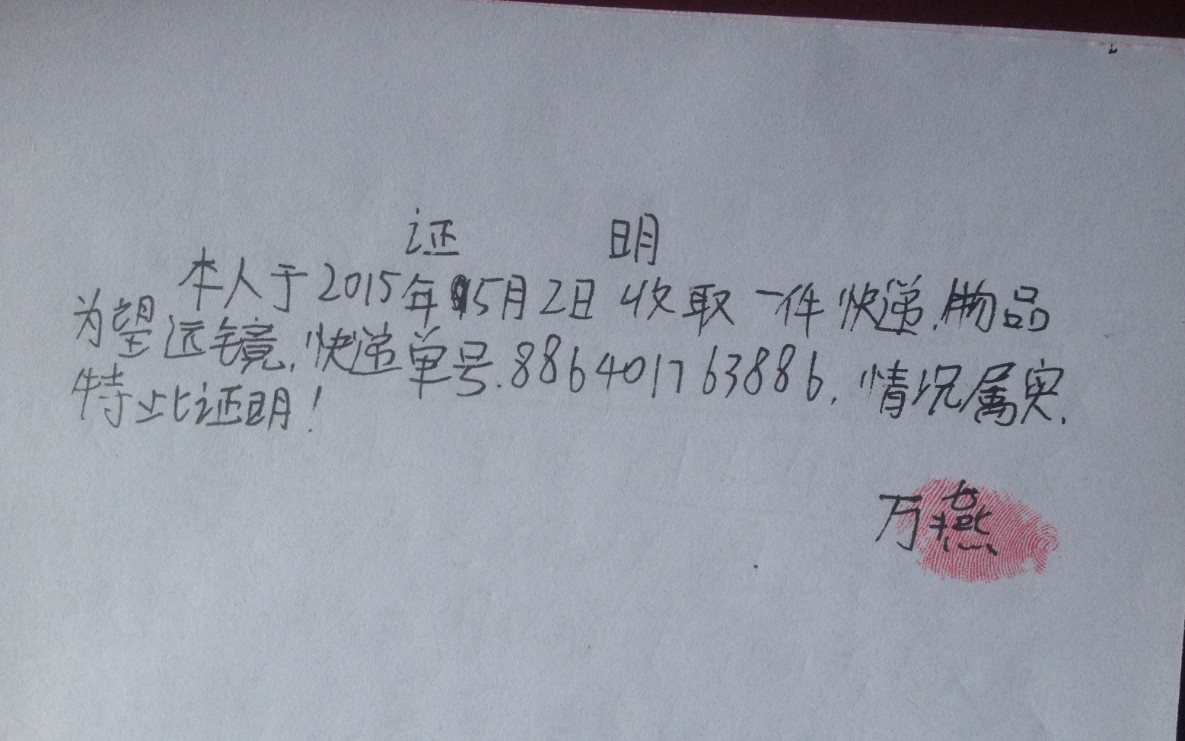 证 明
本人于2015年5月2日收取一件快递.物品
为望远镜.快递单号.886401763886.情况属实.
特此证明!
万燕